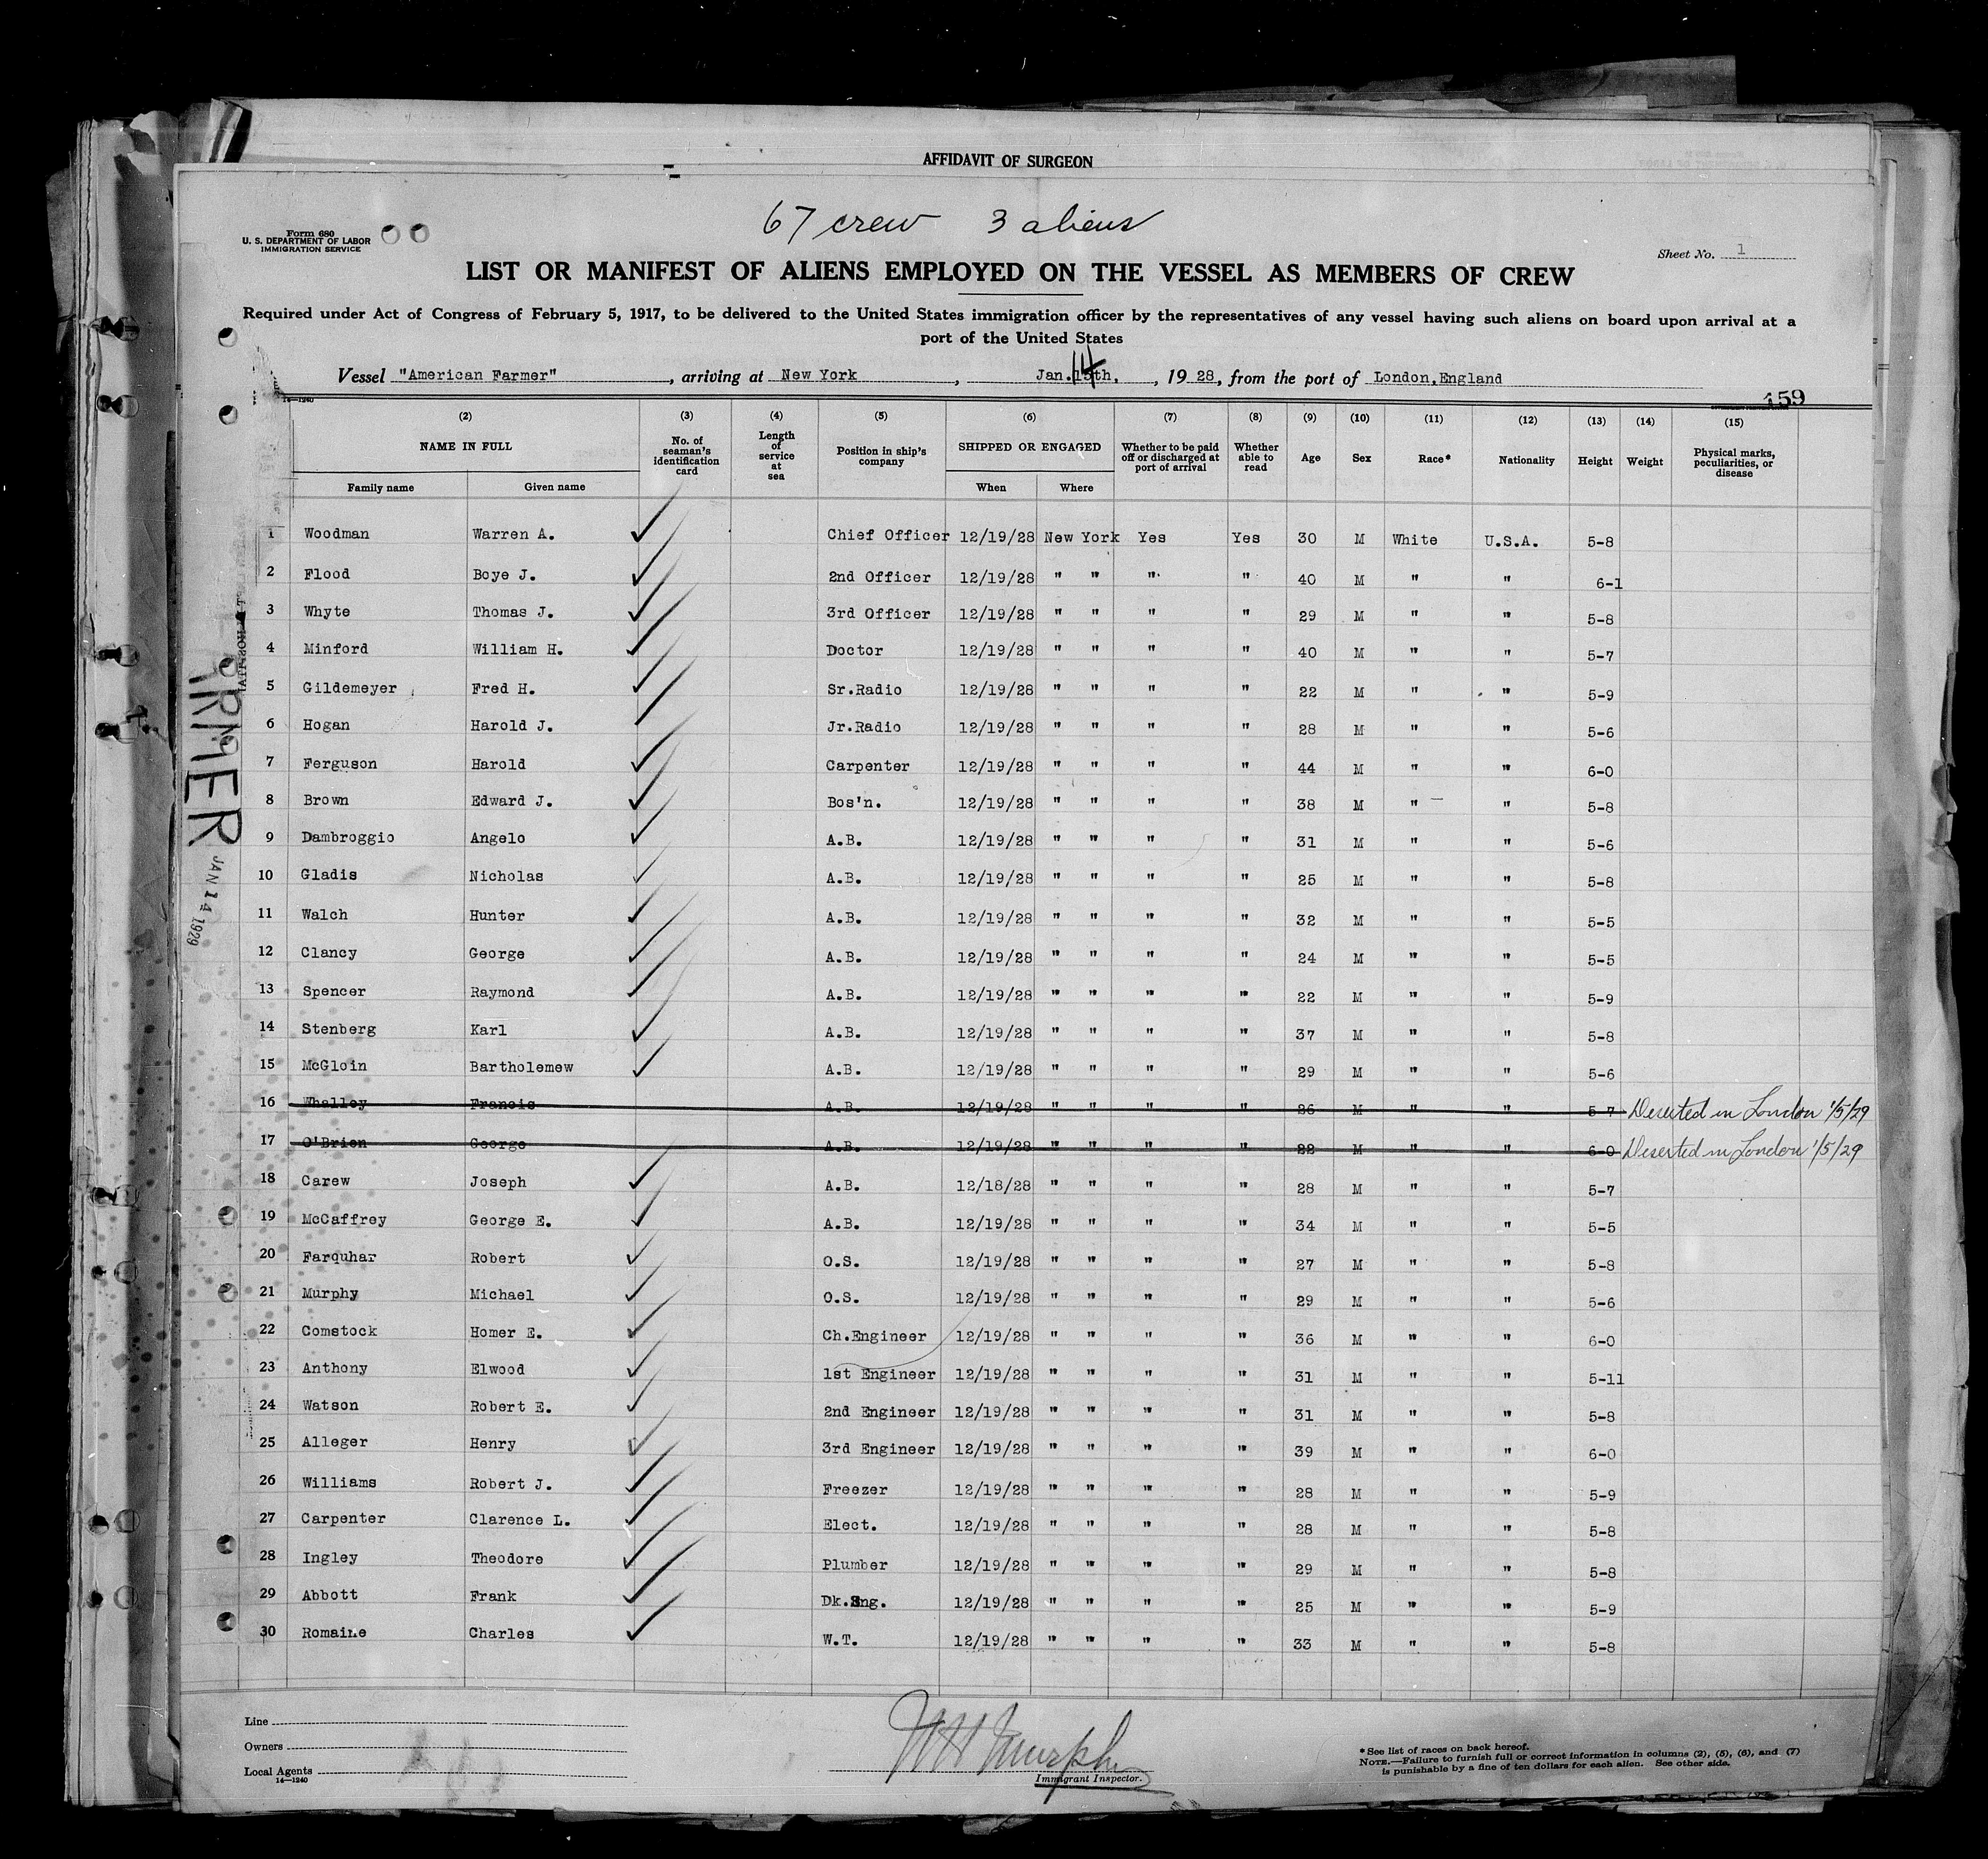 AFFIDAVIT OF SURGEON
67 crew 3 aliens
Form 680
U. S. DEPARTMENT OF LABOR
IMMIGRATION SERVICE
Sheet No. 1
LIST OR MANIFEST OF ALIENS EMPLOYED ON THE VESSEL AS MEMBERS OF CREW
Required under Act of Congress of February 5, 1917, to be delivered to the United States immigration officer by the representatives of any vessel having such aliens on board upon arrival at a
port of the United States
Vessel "American Farmer", arriving at New York, Jan. 14 15th, , 19 28, from the port of London, England
159
14—1240
(2) (3) (4) (5) (6) (7) (8) (9) (10) (11) (12) (13) (14) (15)
NAME IN FULL No. of seaman's identification card Length of service at sea Position in ship's company SHIPPED OR ENGAGED Whether to be paid off or discharged at port of arrival Whether able to read Age Sex Race* Nationality Height Weight Physical marks, peculiarities, or disease
Family name Given name When Where
1 Woodman Warren A. Chief Officer 12/19/28 New York Yes Yes 30 M White U.S.A. 5-8
2 Flood Boye J. 2nd Officer 12/19/28 " " " " 40 M " " 6-1
3 Whyte Thomas J. 3rd Officer 12/19/28 " " " " 29 M " " 5-8
4 Minford William H. Doctor 12/19/28 " " " " 40 M " " 5-7
5 Gildemeyer Fred H. Sr.Radio 12/19/28 " " " " 22 M " " 5-9
6 Hogan Harold J. Jr.Radio 12/19/28 " " " " 28 M " " 5-6
7 Ferguson Harold Carpenter 12/19/28 " " " " 44 M " " 6-0
8 Brown Edward J. Bos'n. 12/19/28 " " " " 38 M " " 5-8
9 Dambroggio Angelo A.B. 12/19/28 " " " " 31 M " " 5-6
10 Gladis Nicholas A.B. 12/19/28 " " " " 25 M " " 5-8
11 Walch Hunter A.B. 12/19/28 " " " " 32 M " " 5-5
12 Clancy George A.B. 12/19/28 " " " " 24 M " " 5-5
13 Spencer Raymond A.B. 12/19/28 " " " " 22 M " " 5-9
14 Stenberg Karl A.B. 12/19/28 " " " " 37 M " " 5-8
15 McGloin Bartholemew A.B. 12/19/28 " " " " 29 M " " 5-6
16 Whalley Francis A.B. 12/19/28 " " " " 26 M " " 5-7 Deserted in London 1/5/29
17 O'Brien George A.B. 12/19/28 " " " " 22 M " " 6-0 Deserted in London 1/5/29
18 Carew Joseph A.B. 12/18/28 " " " " 28 M " " 5-7
19 McCaffrey George E. A.B. 12/19/28 " " " " 34 M " " 5-5
20 Farquhar Robert O.S. 12/19/28 " " " " 27 M " " 5-8
21 Murphy Michael O.S. 12/19/28 " " " " 29 M " " 5-6
22 Comstock Homer E. Ch.Engineer 12/19/28 " " " " 36 M " " 6-0
23 Anthony Elwood 1st Engineer 12/19/28 " " " " 31 M " " 5-11
24 Watson Robert E. 2nd Engineer 12/19/28 " " " " 31 M " " 5-8
25 Alleger Henry 3rd Engineer 12/19/28 " " " " 39 M " " 6-0
26 Williams Robert J. Freezer 12/19/28 " " " " 28 M " " 5-9
27 Carpenter Clarence L. Elect. 12/19/28 " " " " 28 M " " 5-8
28 Ingley Theodore Plumber 12/19/28 " " " " 29 M " " 5-8
29 Abbott Frank Dk.Eng. 12/19/28 " " " " 25 M " " 5-9
30 Romaine Charles W.T. 12/19/28 " " " " 33 M " " 5-8
JAN 14 1929
Line
Owners
Local Agents
14—1240
WH Murphy
Immigrant Inspector.
* See list of races on back hereof.
NOTE.—Failure to furnish full or correct information in columns (2), (5), (6), and (7)
is punishable by a fine of ten dollars for each alien. See other side.